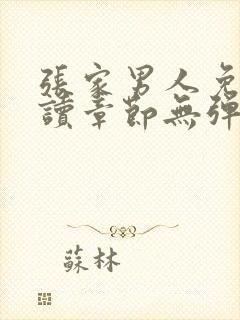 張家男人免
讀章節無彈
蘇林